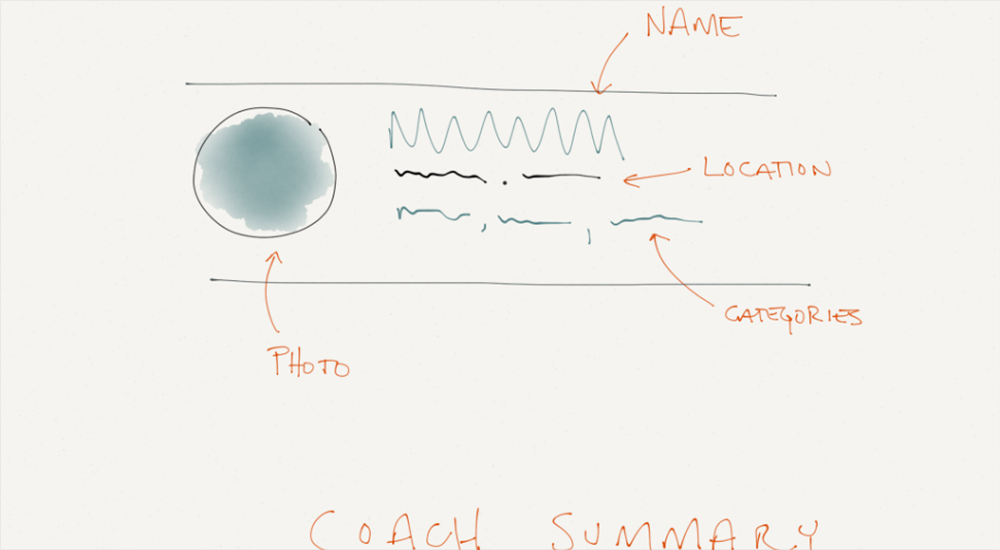 NAME
LOCATION
CATEGORIES
PHOTO
COACH SUMMARY